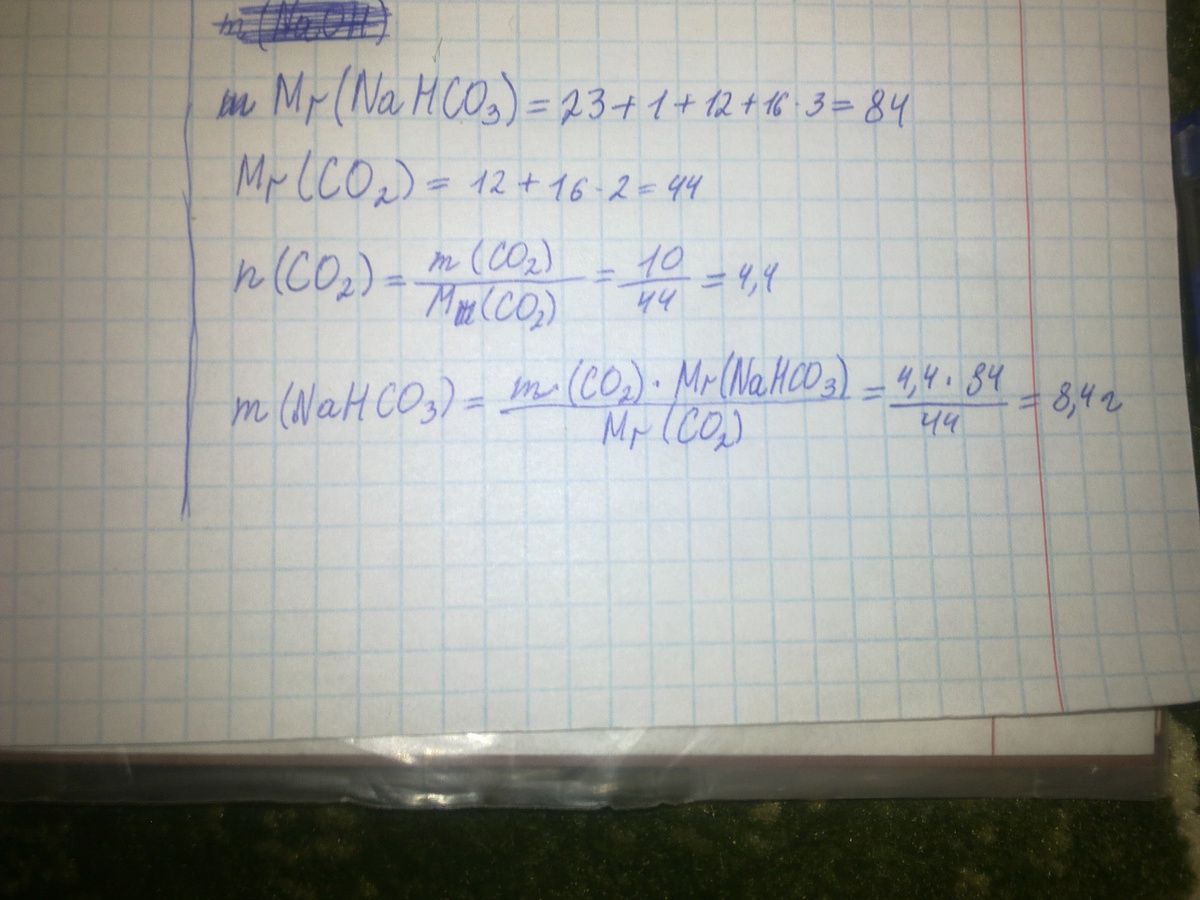 m (NaOH)
m Mr(NaHCO₃) = 23 + 1 + 12 + 16 · 3 = 84
Mr(CO₂) = 12 + 16 · 2 = 44
n(CO₂) = m(CO₂) / M(CO₂) = 10 / 44 = 4,4
m(NaHCO₃) = m(CO₂) · Mr(NaHCO₃) / Mr(CO₂) = 4,4 · 84 / 44 = 8,4 г